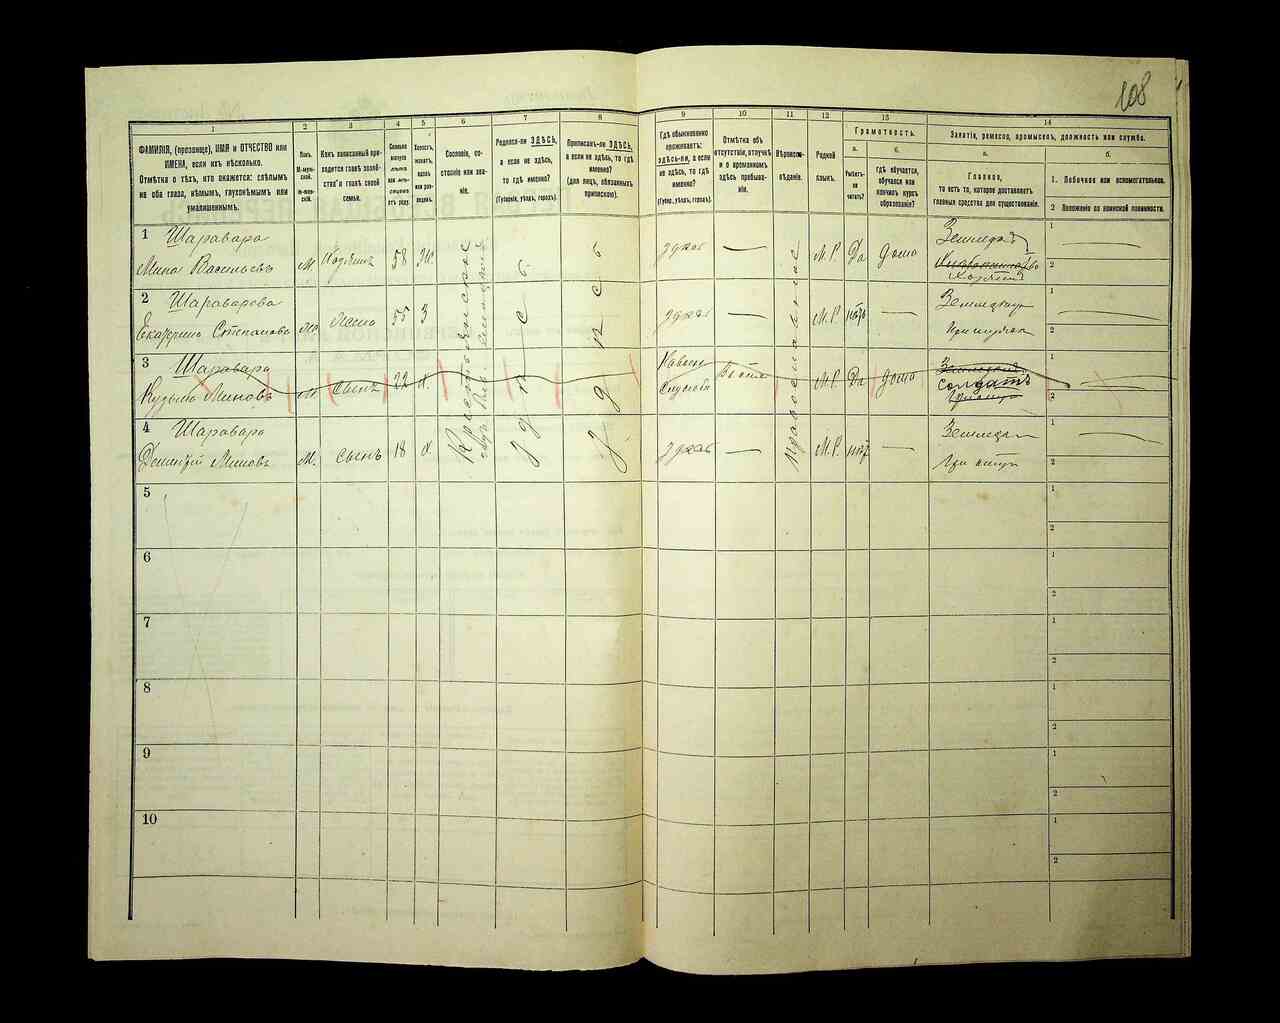 108
1
2
3
4
5
6
7
8
9
10
11
12
13
14
ФАМИЛІЯ, (прозвище), ИМЯ и ОТЧЕСТВО или
ИМЕНА, если ихъ нѣсколько.
Отмѣтка о тѣхъ, кто окажется: слѣпымъ
на оба глаза, нѣмымъ, глухонѣмымъ или
умалишеннымъ.
Полъ.
М-муж-
ской.
Ж-жен-
скій.
Какъ записанный при-
ходится главѣ хозяй-
ства и главѣ своей
семьи.
Сколько
минуло
лѣтъ
или мѣ-
сяцевъ
отъ роду.
Холостъ,
женатъ,
вдовъ
или раз-
веденъ.
Сословіе, со-
стояніе или зва-
ніе.
Родился-ли ЗДѢСЬ,
а если не здѣсь,
то гдѣ именно?
(Губернія, уѣздъ, городъ).
Приписанъ-ли ЗДѢСЬ,
а если не здѣсь, то гдѣ
именно?
(для лицъ, обязанныхъ
припискою).
Гдѣ обыкновенно
проживаетъ:
здѣсь-ли, а если
не здѣсь, то гдѣ
именно?
(Губер., уѣздъ, городъ).
Отмѣтка объ
отсутствіи, отлучкѣ
и о временномъ
здѣсь пребыва-
ніи.
Вѣроиспо-
вѣданіе.
Родной
языкъ.
Грамотность.
а.
Умѣетъ-
ли
читать?
б.
гдѣ обучается,
обучался или
кончилъ курсъ
образованія?
Занятіе, ремесло, промыселъ, должность или служба.
а.
Главное,
то есть то, которое доставляетъ
главныя средства для существованія.
б.
1. Побочное или вспомогательное.
2 Положеніе по воинской повинности.
1 Шаравара
Мина Васильевъ М. Хозяинъ 58 Ж. Крестьянское здѣсь здѣсь здѣсь — Православное М.Р. Да дома Земледѣл
Хозяинъ
1
2
2 Шараварова
Екатерина Степановна Ж. Жена 55 З здѣсь — М.Р. нѣтъ — Земледѣл
При мужѣ
1
2
3 Шаравара
Кузьма Миновъ М. Сынъ 22 Х. М.Р. Да дома
солдатъ
1
2
4 Шаравара
Дементій Миновъ М. сынъ 18 Х. здѣсь — М.Р. нѣтъ — Земледѣл
При отцѣ
1
2
5
1
2
6
1
2
7
1
2
8
1
2
9
1
2
10
1
2